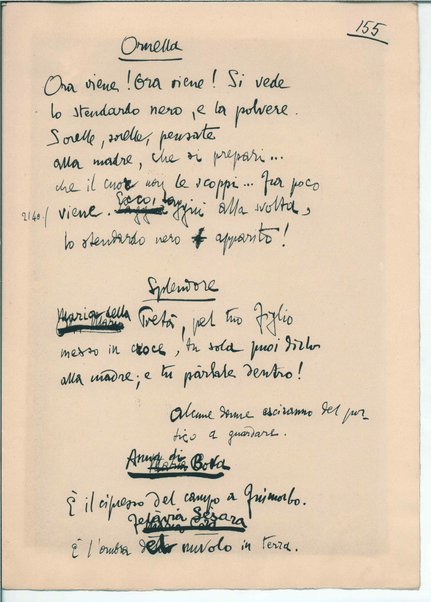 155
Ornella
Ora viene! Ora viene! Si vede
lo stendardo nero, e la polvere.
Sorelle, sorelle, pensate
alla madre, che si prepari...
che il cuor non le scoppi... Fra poco
2140/ viene. Ecco, laggiù alla svolta,
lo stendardo nero è apparito!
Splendore
Maria della Pietà, pel tuo Figlio
messo in croce, tu sola puoi dirlo
alla màdre; e tu pàrlale dentro!
Alcune donne esciranno dal por-
tico a guardare.
Anna di Bova
È il cipresso del campo a Guimorbo.
Felàvia Sèsara
È l'ombra del nuvolo in terra.